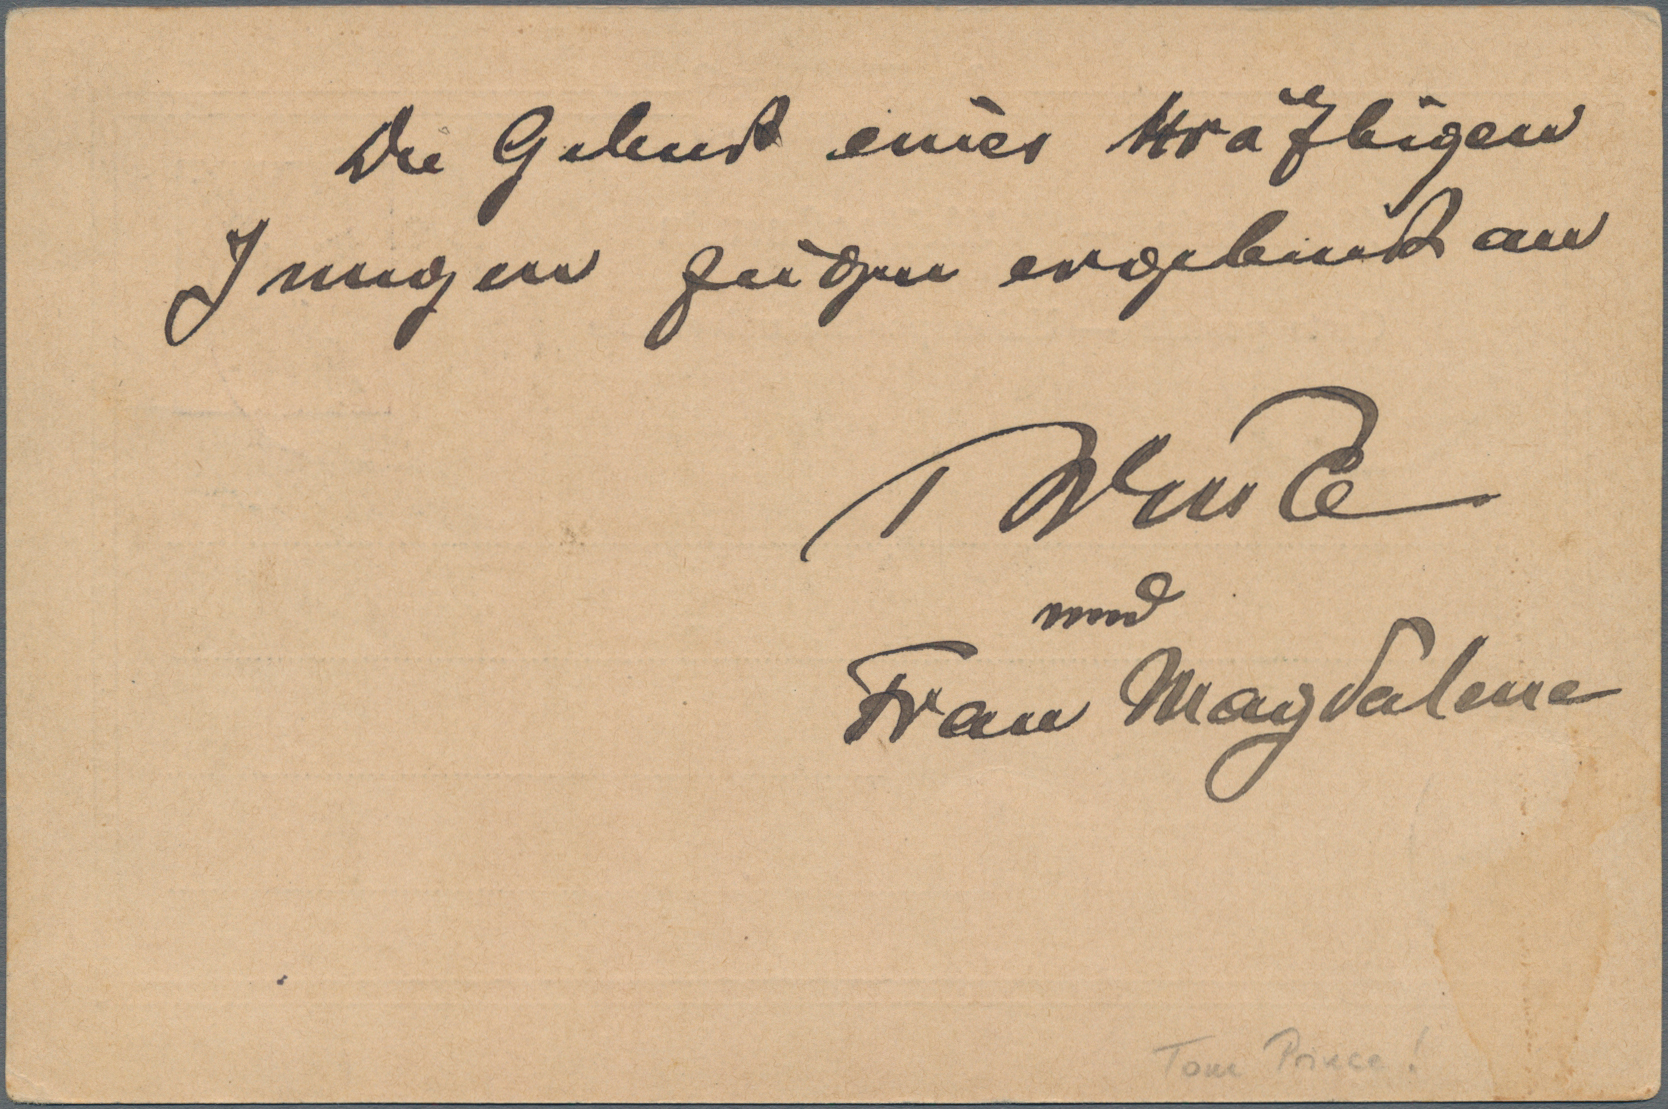 Die Geburt eines kräftigen
Jungen zeigen ergebenst an
T Prince
und
Frau Magdalene
Tom Prince!